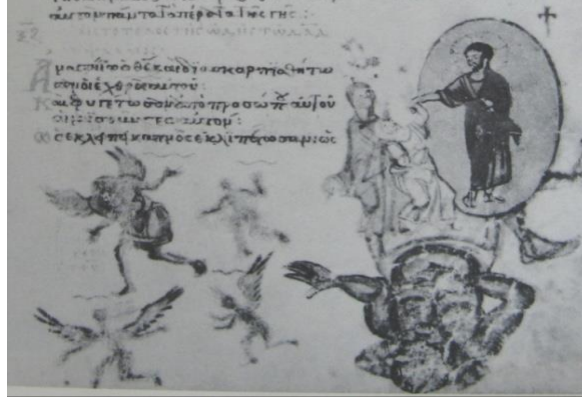 αυτον παντα τα περατα της γης :
Αναστητω ο θς και διασκορπισθητω
σαν οι εχθροι αυτου :
Και φυγετωσαν απο προσωπου αυτου
οι μισουντες αυτον :
Ως εκλειπει καπνος εκλιπετωσαν ως